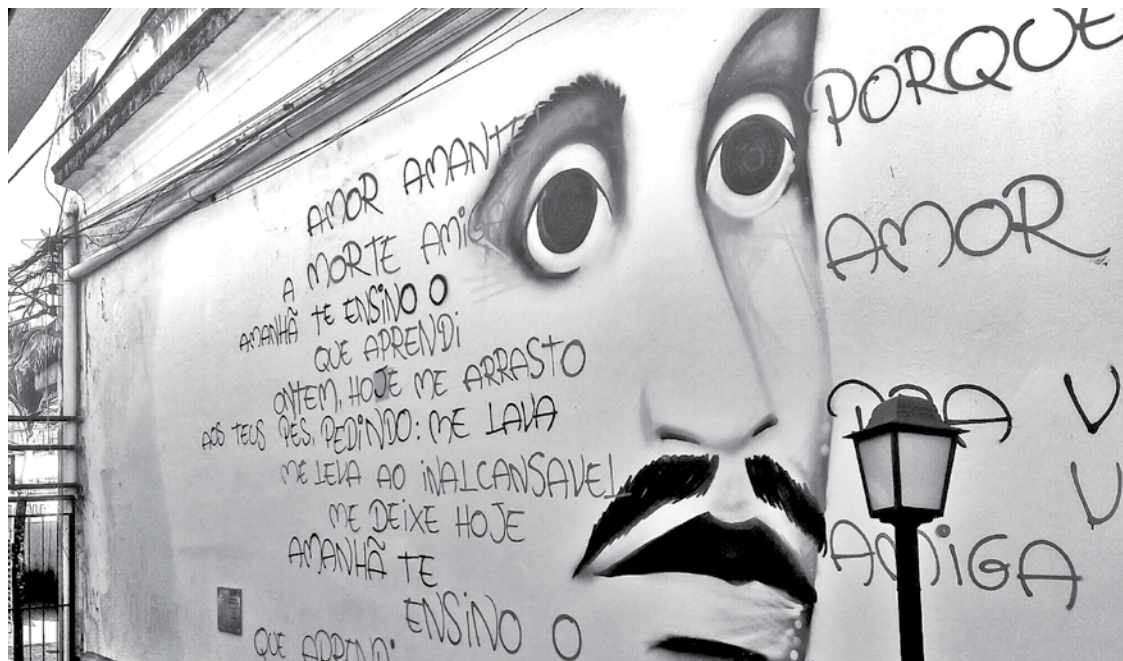 AMOR AMANTE
A MORTE AMIGA
AMANHÃ TE ENSINO O
QUE APRENDI
ONTEM, HOJE ME ARRASTO
AOS TEUS PÉS, PEDINDO: ME LAVA
ME LEVA AO INALCANSAVEL
ME DEIXE HOJE
AMANHÃ TE
ENSINO O
QUE
PORQUE
AMOR
V
V
AMIGA